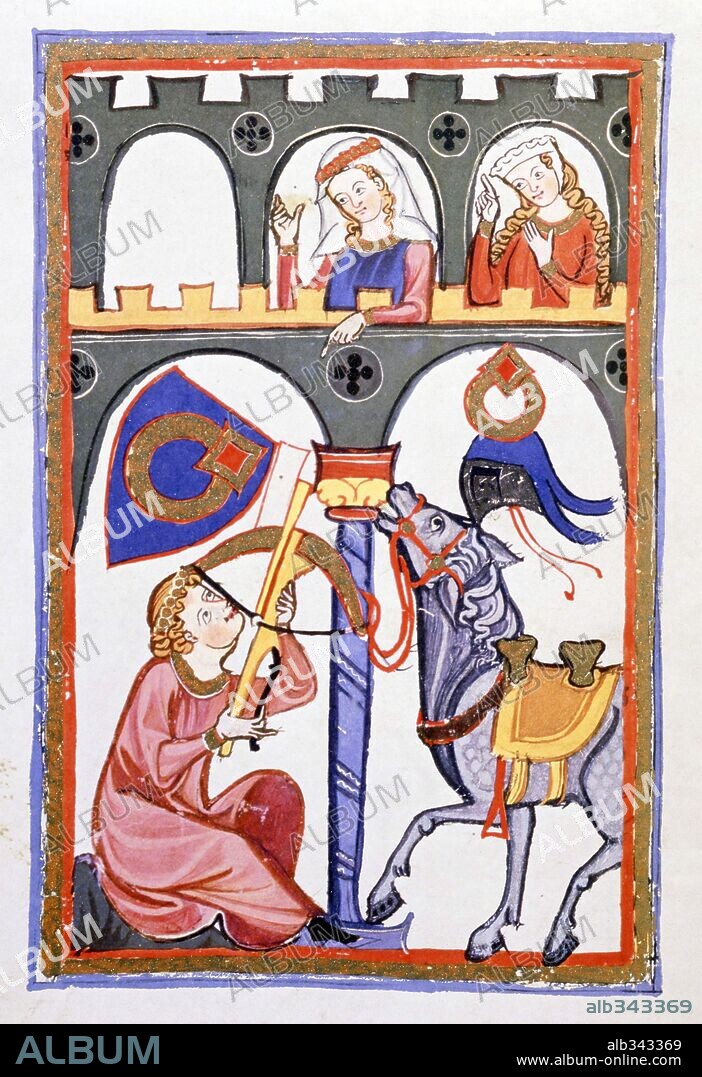 ALBUM
alb343369
ALBUM
alb343369
www.album-online.com